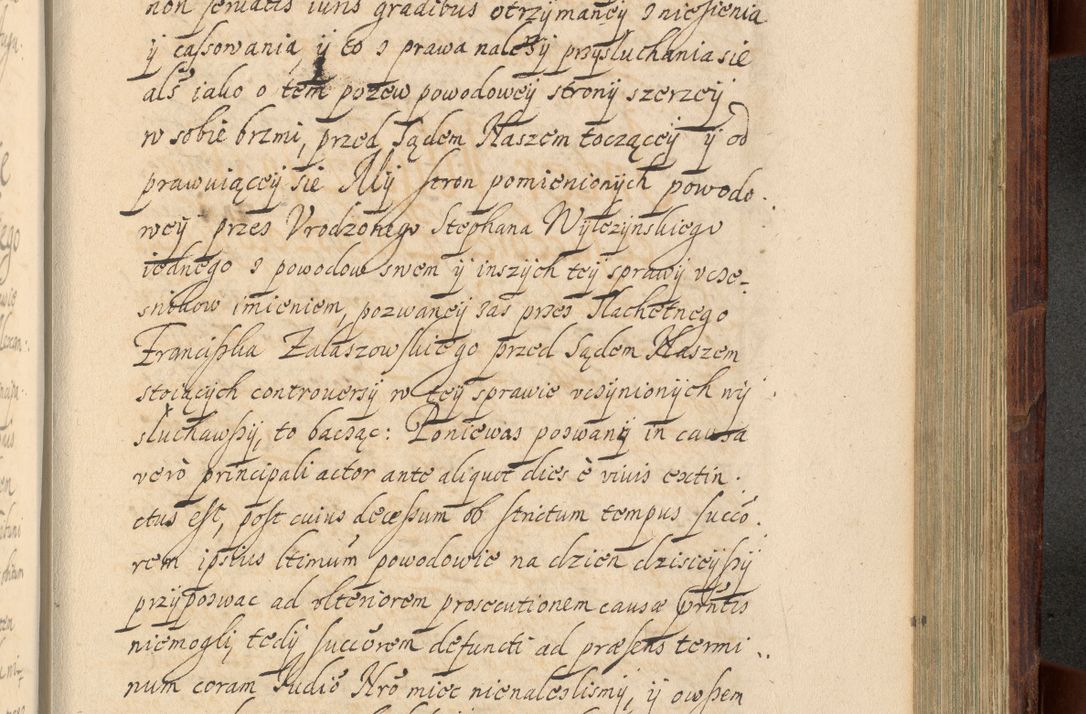 non servatis iuris gradibus otrzymaney zniesienia
ÿ cassowania, ÿ to z prawa należÿ przÿsłuchania się
als iako o tem pozew powodoweÿ stronÿ szerzeÿ
w sobie brzmi, przed Sądem Naszem toczącceÿ ÿ od
prawuiąceÿ się Mÿ stron pomienionÿch powodo
weÿ przes Vrodzonego Stephana Wÿlczÿnskiego
iednego z powodow swem ÿ inszÿch teÿ sprawÿ vcze-
snikow imieniem, pozwaneÿ zas przez Slachetnego
Franciszka Zalaszowskiego przed Sądem Naszem
stoiącÿch controuersÿ w teÿ sprawie vczÿnionÿch wÿ
słuchawszÿ, to bacząc: Poniewas pozwanÿ in causa
verò principali actor ante aliquot dies è viuis extin
ctus est, post cuius decessum ob strictum tempus succo
rem ipsius ltimum powodowie na dzien dzisieÿszÿ
przÿpozwac ad vlteriorem prosecutionem causæ prntis
niemogli, tedÿ succorem defuncti ad præsens termi
num coram Judio Nro miec nienalezlismÿ, ÿ owszem